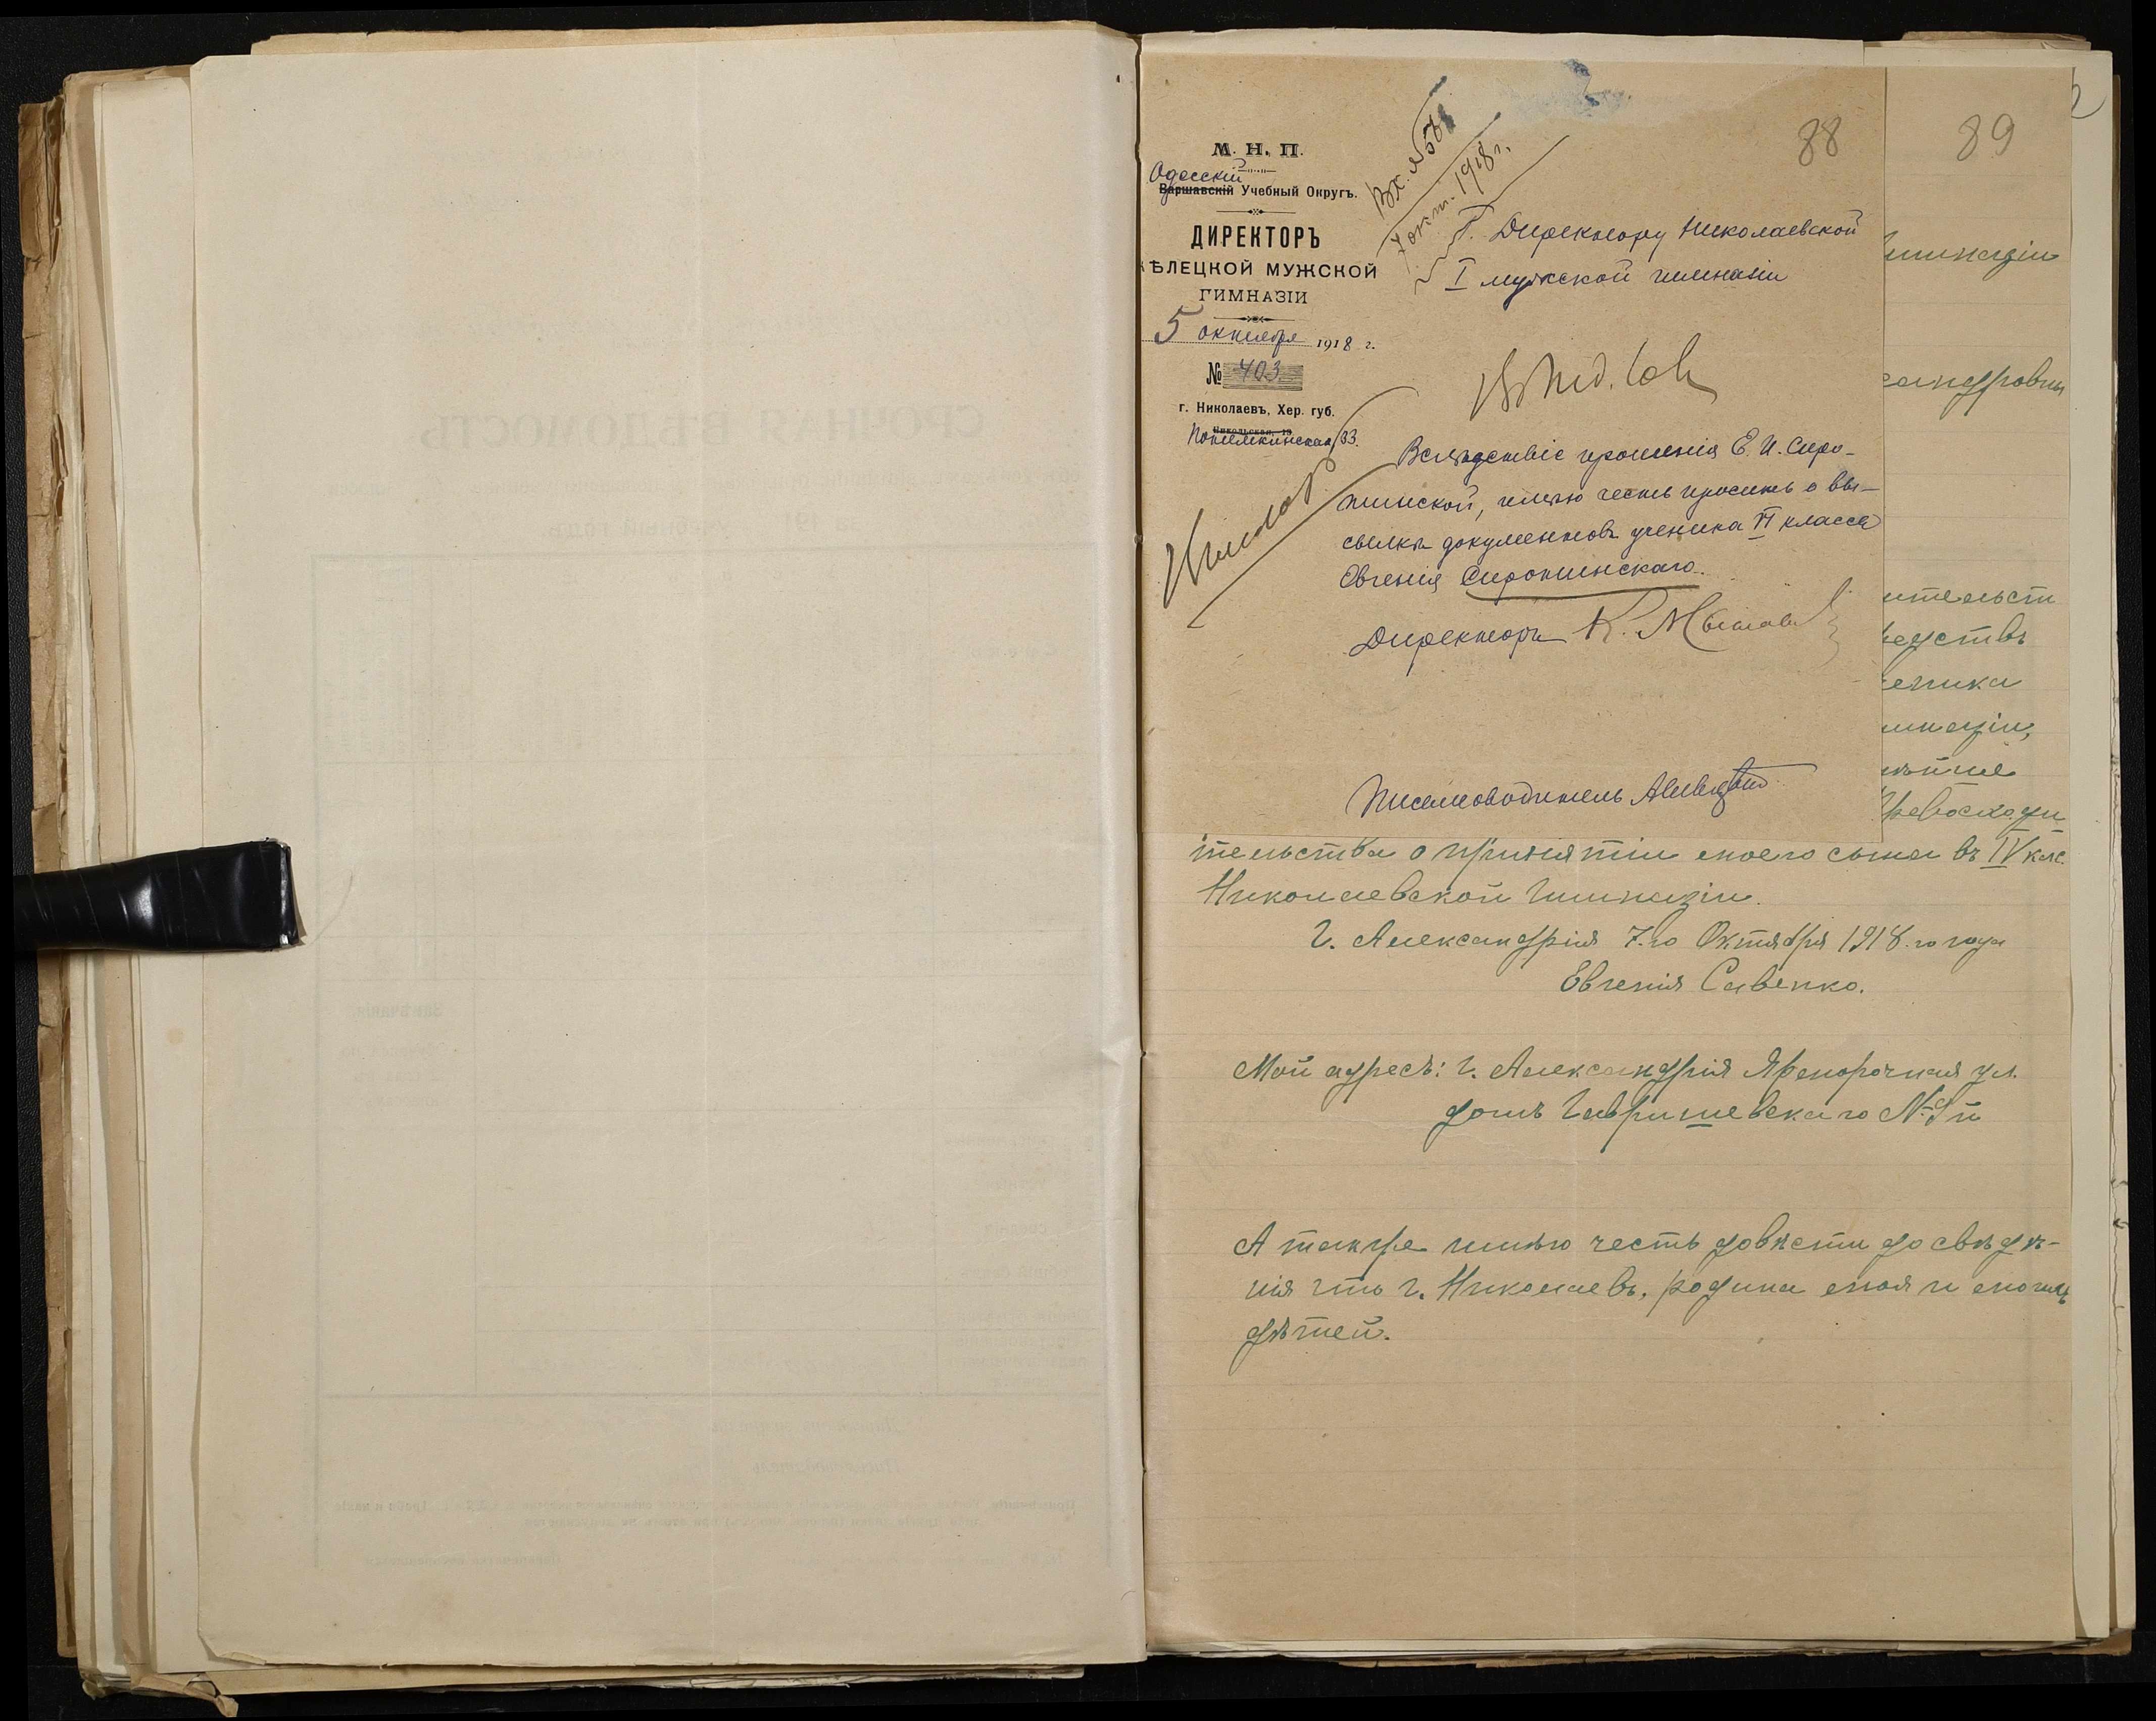 88
89
М. Н. П.
Одесскій
Варшавскій Учебный Округъ.
ДИРЕКТОРЪ
ѢЛЕЦКОЙ МУЖСКОЙ
ГИМНАЗІИ
5 октября 1918 г.
№ 403
г. Николаевъ, Хер. губ.
Никольская, 13
Потемкинская, 33.
Вх. №
7 окт. 1918 г.
Г. Директору Николаевской
I мужской гимназіи
Вслѣдствіе прошенія Е. И. Сиро-
тинской, имѣю честь просить о вы-
сылкѣ документовъ ученика VI класса
Евгенія Сиротинскаго.
Директоръ К.
Письмоводитель
имназіи
сандровны
ительст
редствъ
еника
мназіи,
Превосходи
тельства о принятіи моего сына въ IV клс.
Николаевской Гимназіи.
Г. Александрія 7-го Октября 1918-го года
Евгенія Савенко.
Мой адресъ: г. Александрія Ярморочная ул.
домъ Гавришевскаго №
А также имѣю честь довѣсти до свѣдѣ-
нія что г. Николаевъ, родина моя и моихъ
дѣтей.
СРОЧНАЯ ВѢДОМОСТЬ